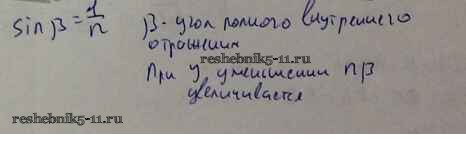 sin β = 1/n
β - угол полного внутреннего
отражения
reshebnik5-11.ru
При уменьшении n β
увеличивается
reshebnik5-11.ru